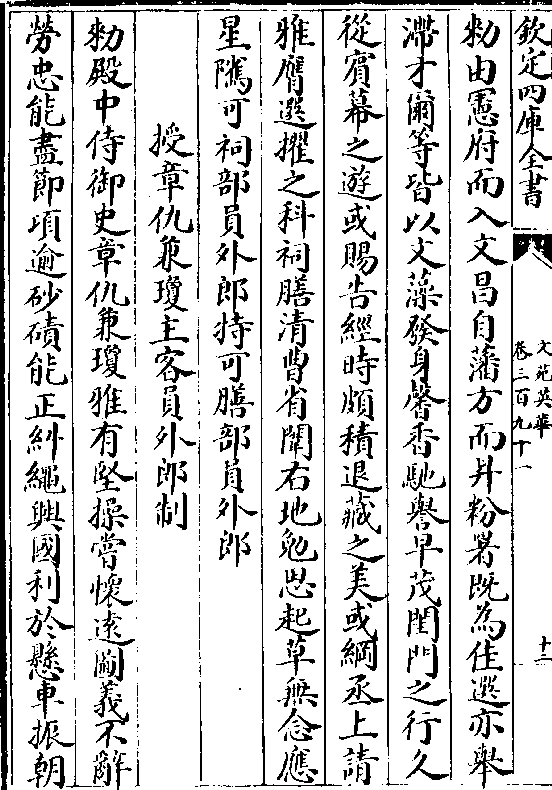 欽定四庫全書
文苑英華
卷三百九十一
十二
勑由憲府而入文昌自藩方而升粉署既為佳選亦舉
滯才爾等皆以文藻發身馨香馳譽早茂閨門之行久
從賓幕之遊或賜告經時頗積退藏之美或綱丞上請
雅膺選擢之科祠膳清曹省闈右地勉思起草無念應
星隲可祠部員外郎持可膳部員外郎
授章仇兼瓊主客員外郎制
勑殿中侍御史章仇兼瓊雅有堅操嘗懷遠圖義不辭
勞忠能盡節項逾砂磧能正糾繩興國利於懸車振朝